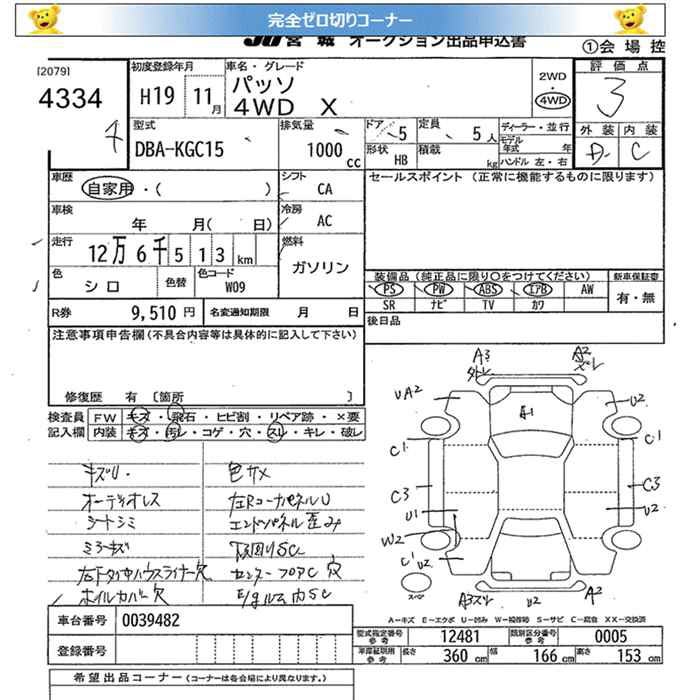 完全ゼロ切りコーナー
JU宮城 オークション出品申込書
①会場控
[2079]
4334
初度登録年月
H19 11月
車名・グレード
パッソ
4WD X
2WD
4WD
評価点
3
外装 内装
D C
型式
DBA-KGC15
排気量
1000 cc
ドア 5
形状 HB
定員 5人
積載 kg
ディーラー・並行
モデル年式 年
ハンドル 左・右
車歴
自家用・( )
シフト CA
セールスポイント (正常に機能するものに限ります)
車検
年 月( 日)
冷房 AC
走行
12万6千513km
燃料
ガソリン
色
シロ
色替
色コード
W09
装備品(純正品に限り○をつけてください)
新車保証書
PS PW ABS エアB AW
有・無
SR ナビ TV カワ
R券 9,510円
名変通知期限 月 日
後日品
注意事項申告欄(不具合内容等は具体的に記入して下さい)
修復歴 有〔箇所 〕
検査員 FW キズ・飛石・ヒビ割・リペア跡・×要
記入欄 内装 キズ・汚レ・コゲ・穴・スレ・キレ・破レ
キズU. 色サメ
オーディオレス 左Rコーナパネル U
シートシミ エンドパネル歪み
ミラーキズ 下回りSC
左Fタイヤハウスライナー欠 センターフロアC 穴
ホイルカバー欠 E/gルム内SC
A3 A2
UA2 A1 U2
C1 C1
C3 C3
U1 U2
W2
C1 U2
スペア A3 U2 A2
車台番号 0039482
登録番号
A-キズ E-エクボ U-凹み W-補修跡 S-サビ C-腐食 XX-交換済
型式指定番号 参考 12481 類別区分番号 参考 0005
車庫証明用 参考 長さ 360cm 幅 166cm 高さ 153cm
希望出品コーナー(コーナーは各会場により異なります。)